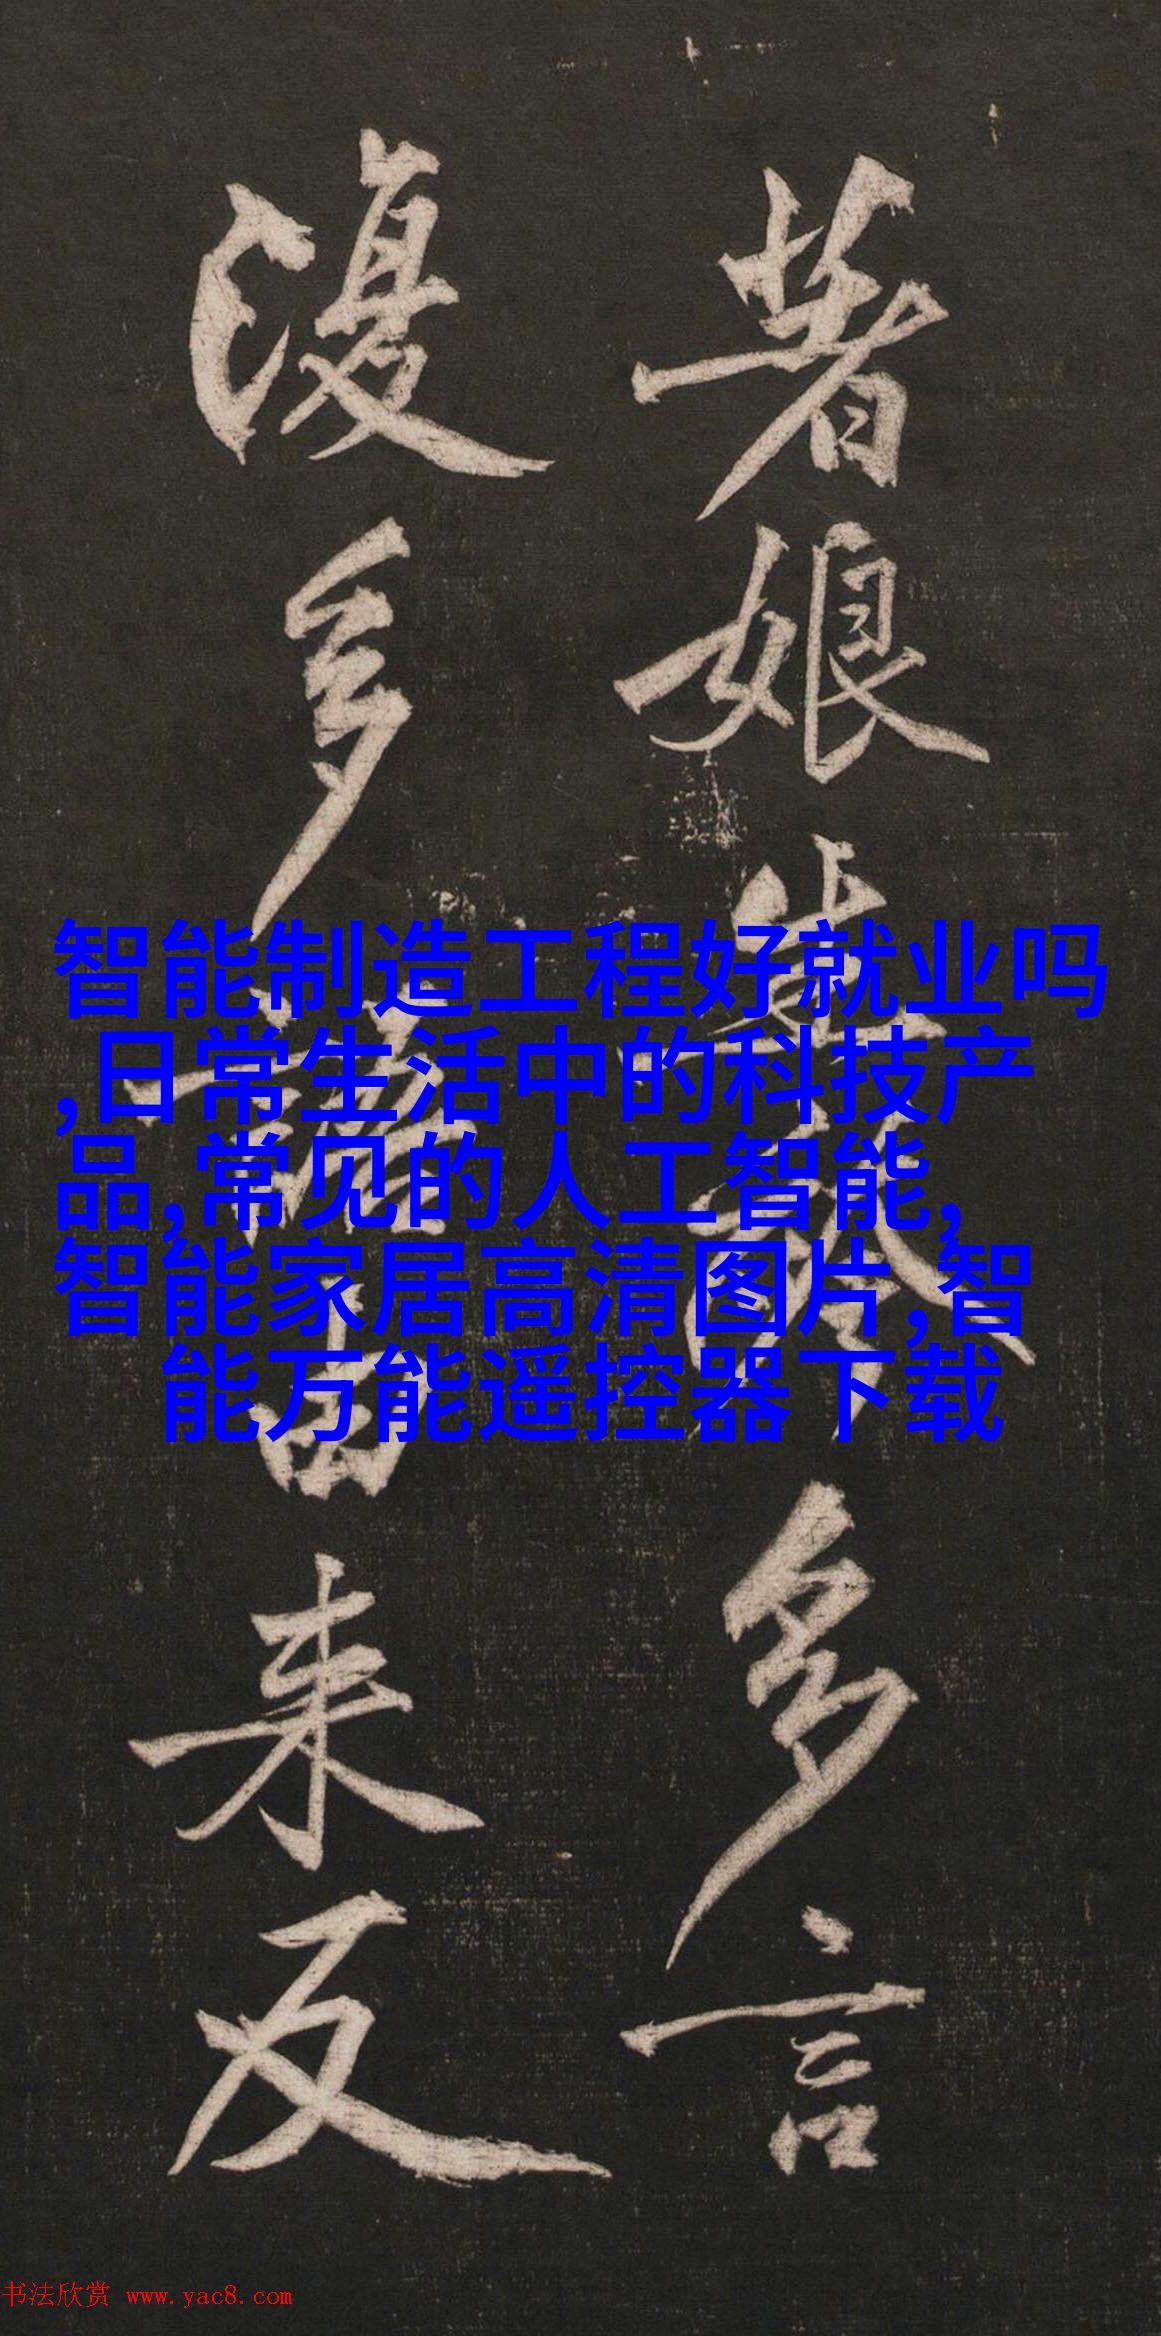 娘
多言
多
来反
智能制造工程好就业吗
,日常生活中的科技产
品,常见的人工智能,
智能家居高清图片,智
能万能遥控器下载
书法欣赏 www.yac8.com